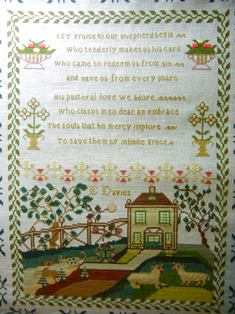 Let Praise to our shepherd begin
who tenderly makes us his care
who came to redeem us from sin
and save us from every snare
His pastoral love we adore
who clasps in so dear an embrace
The souls that his mercy implore
To save them by infinite Grace
E Davies